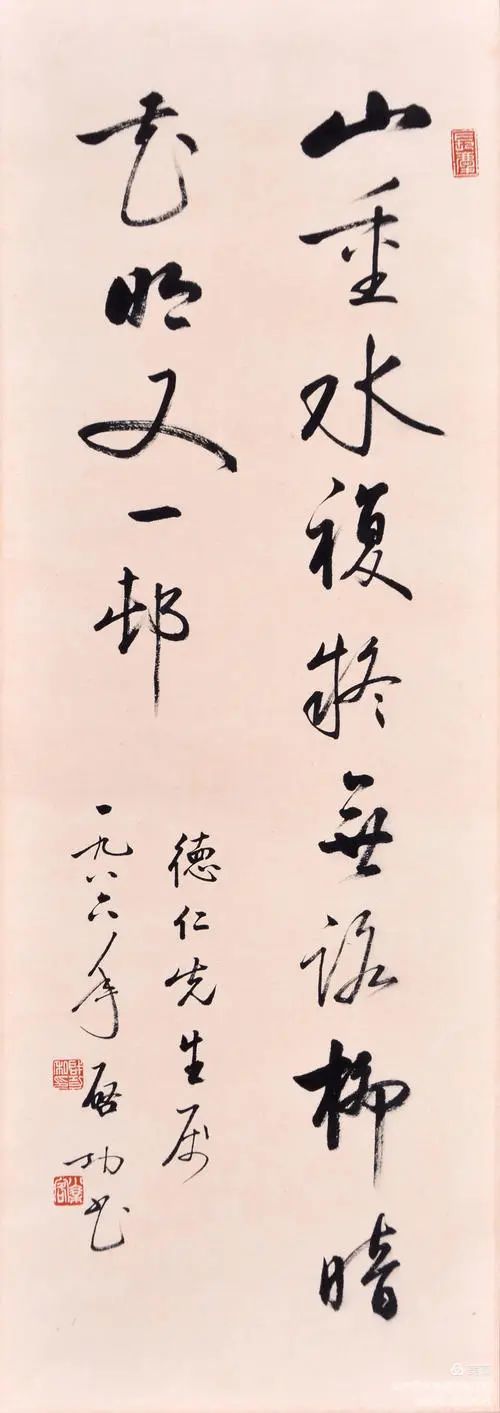 山重水複疑無路柳暗
花明又一邨
德仁先生属
一九八六年启功书